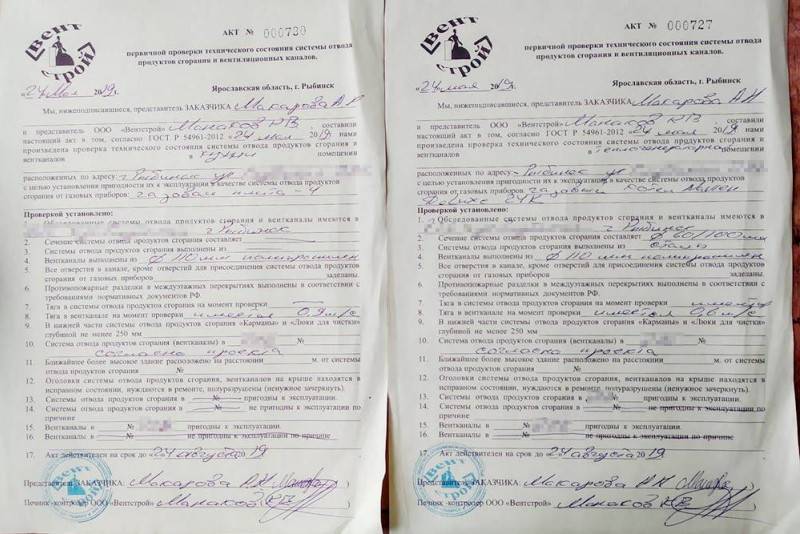 Вент
строй
АКТ № 000730
первичной проверки технического состояния системы отвода
продуктов сгорания и вентиляционных каналов.
«24» мая 2019г. Ярославская область, г. Рыбинск
Мы, нижеподписавшиеся, представитель ЗАКАЗЧИКА Макарова А И
и представитель ООО «Вентстрой» Манаков , составили
настоящий акт в том, согласно ГОСТ Р 54961-2012 «24» мая 2019 нами
произведена проверка технического состояния системы отвода продуктов сгорания и
вентканалов в кухни помещении
расположенных по адресу: г. Рыбинск ул
с целью установления пригодности их к эксплуатации в качестве системы отвода продуктов
сгорания от газовых приборов газовая плита - 4
Проверкой установлено:
1. Обследованные системы отвода продуктов сгорания и вентканалы имеются в
г Рыбинск
2. Сечение системы отвода продуктов сгорания составляет
3. Системы отвода продуктов сгорания выполнены из
4. Вентканалы выполнены из ф 110мм
5. Все отверстия в канале, кроме отверстий для присоединения системы отвода продуктов
сгорания от газовых приборов заделаны.
6. Противопожарные разделки в междуэтажных перекрытиях выполнены в соответствии с
требованиями нормативных документов РФ.
7. Тяга в системы отвода продуктов сгорания на момент проверки
8. Тяга в вентканале на момент проверки имеется 0,9 м/с
9. В нижней части системы отвода продуктов сгорания «Карманы» и «Люки для чистки»
глубиной не менее 250 мм
10. Система отвода продуктов сгорания (вентканалы) в №
согласно проекта
11. Ближайшее более высокое здание расположено на расстоянии м. от системы
отвода продуктов сгорания №
12. Оголовки системы отвода продуктов сгорания, вентканалов на крыше находятся в
исправном состоянии, нуждаются в ремонте, полуразрушены (ненужное зачеркнуть).
13. Системы отвода продуктов сгорания в № пригодны к эксплуатации.
14. Системы отвода продуктов сгорания в № не пригодны к эксплуатации по
причине
15. Вентканалы в № пригодны к эксплуатации.
16. Вентканалы в № не пригодны к эксплуатации по причине
17. Акт действителен на срок до «24» августа 2019
Представитель ЗАКАЗЧИКА: Макарова А И
Печник -контролер ООО «Вентстрой» Манаков
Вент
строй
АКТ № 000727
первичной проверки технического состояния системы отвода
продуктов сгорания и вентиляционных каналов.
«24» мая 2019г. Ярославская область, г. Рыбинск
Мы, нижеподписавшиеся, представитель ЗАКАЗЧИКА Макарова А И
и представитель ООО «Вентстрой» Манаков , составили
настоящий акт в том, согласно ГОСТ Р 54961-2012 «24» мая 2019 нами
произведена проверка технического состояния системы отвода продуктов сгорания и
вентканалов в теплогенераторна помещении
расположенных по адресу: г. Рыбинск ул
с целью установления пригодности их к эксплуатации в качестве системы отвода продуктов
сгорания от газовых приборов газовый котел Навиен
Делюкс 24К
Проверкой установлено:
1. Обследованные системы отвода продуктов сгорания и вентканалы имеются в
г. Рыбинск
2. Сечение системы отвода продуктов сгорания составляет ф 60/100мм
3. Системы отвода продуктов сгорания выполнены из
4. Вентканалы выполнены из ф 110 мм
5. Все отверстия в канале, кроме отверстий для присоединения системы отвода продуктов
сгорания от газовых приборов заделаны.
6. Противопожарные разделки в междуэтажных перекрытиях выполнены в соответствии с
требованиями нормативных документов РФ.
7. Тяга в системы отвода продуктов сгорания на момент проверки имеется
8. Тяга в вентканале на момент проверки имеется 0,6 м/с
9. В нижней части системы отвода продуктов сгорания «Карманы» и «Люки для чистки»
глубиной не менее 250 мм
10. Система отвода продуктов сгорания (вентканалы) в №
согласно проекта
11. Ближайшее более высокое здание расположено на расстоянии м. от системы
отвода продуктов сгорания №
12. Оголовки системы отвода продуктов сгорания, вентканалов на крыше находятся в
исправном состоянии, нуждаются в ремонте, полуразрушены (ненужное зачеркнуть).
13. Системы отвода продуктов сгорания в пригодны к эксплуатации.
14. Системы отвода продуктов сгорания в № не пригодны к эксплуатации по
причине
15. Вентканалы в № пригодны к эксплуатации.
16. Вентканалы в № не пригодны к эксплуатации по причине
17. Акт действителен на срок до «24» августа 2019
Представитель ЗАКАЗЧИКА: Макарова А И
Печник -контролер ООО «Вентстрой» Манаков